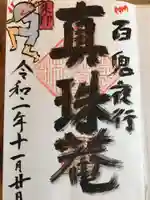 百鬼夜行
真珠庵
令和二年十一月廿日